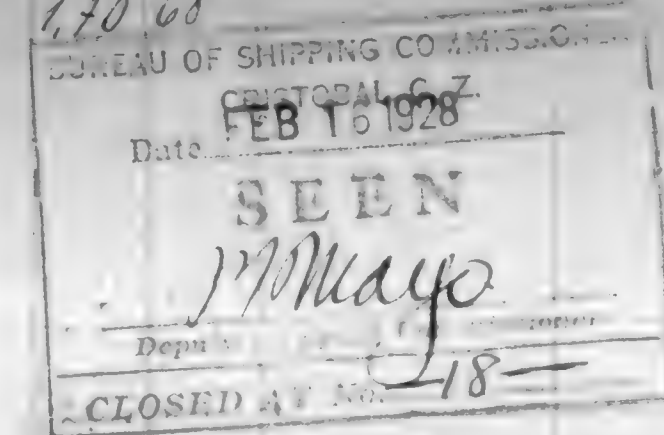 1,70 60
BUREAU OF SHIPPING COMMISSIO
CRISTOBAL, C. Z.
FEB 16 1928
Date
SEEN
Mayo
Depu
CLOSED AT No. 18